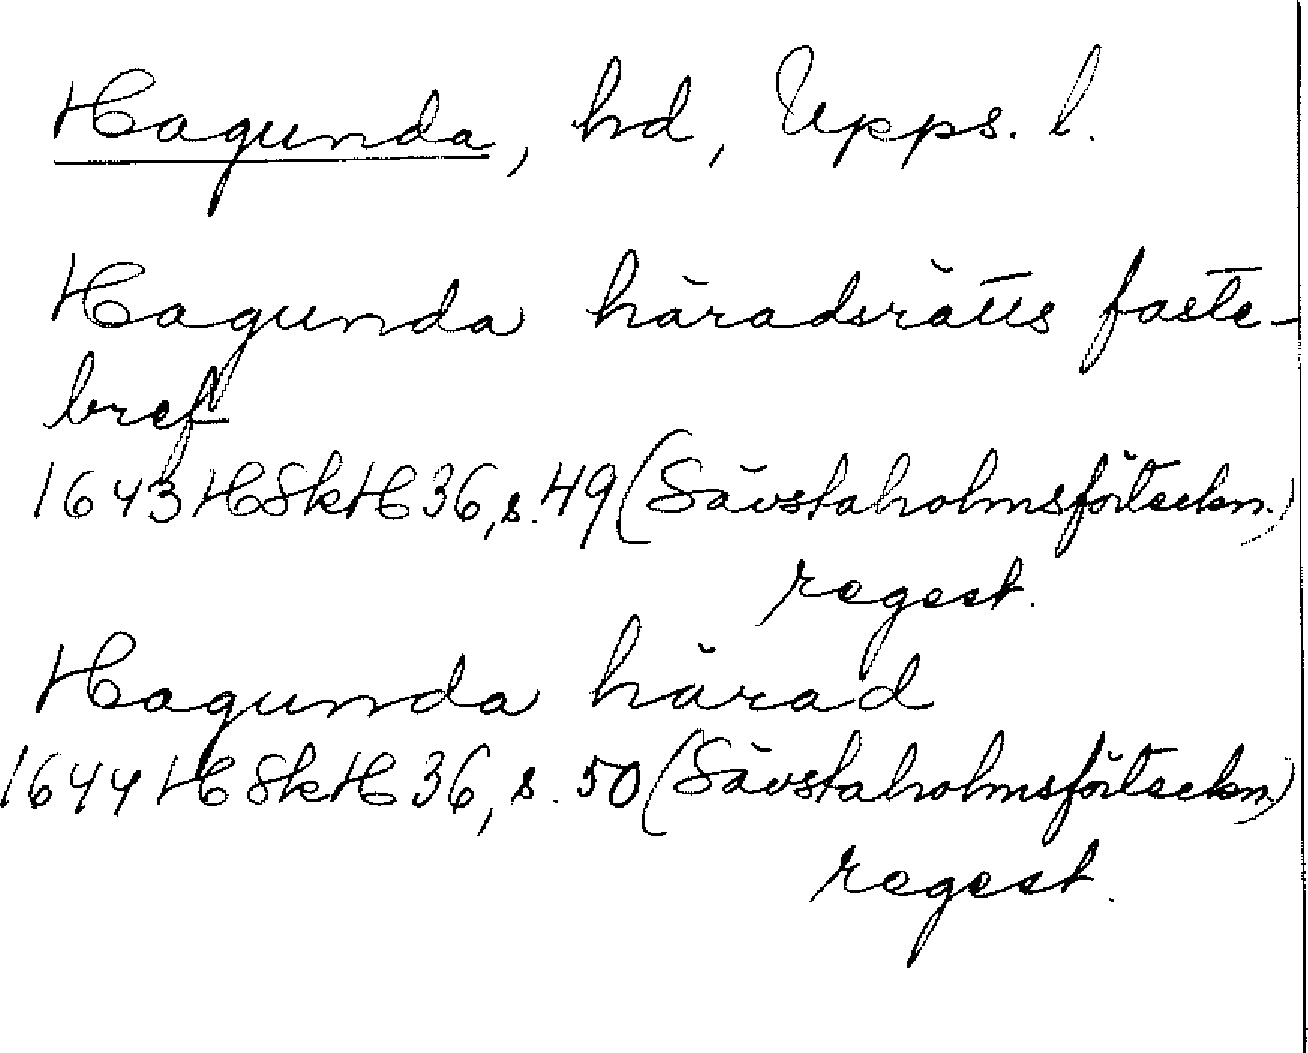 Hagunda, hd, Upps. l.
Hagunda häradsrätts faste-
bref
1643 HSkH 36, s. 49 (Sävstaholmsförteckn.)
regest.
Hagunda härad
1644 HSkH 36, s. 50 (Sävstaholmsförteckn.)
regest.